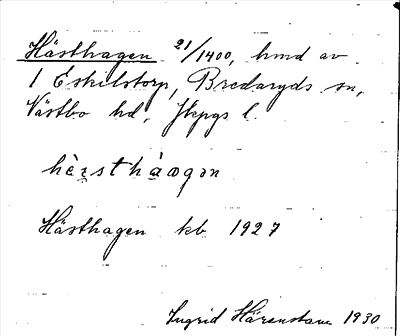 Hästhagen 21/1400, hmd av
1 Eskilstorp, Bredaryds sn,
Västbo hd, Jkpgs l.
Hästhagen kb 1927
Ingrid Härenstam 1930